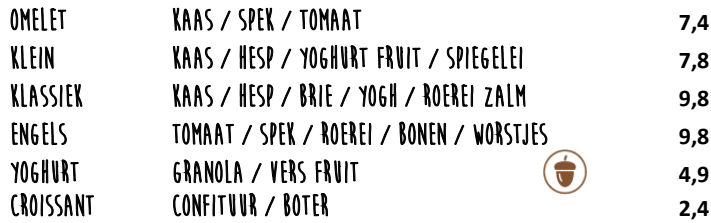 OMELET KAAS / SPEK / TOMAAT 7,4
KLEIN KAAS / HESP / YOGHURT FRUIT / SPIEGELEI 7,8
KLASSIEK KAAS / HESP / BRIE / YOGH / ROEREI ZALM 9,8
ENGELS TOMAAT / SPEK / ROEREI / BONEN / WORSTJES 9,8
YOGHURT GRANOLA / VERS FRUIT 4,9
CROISSANT CONFITUUR / BOTER 2,4